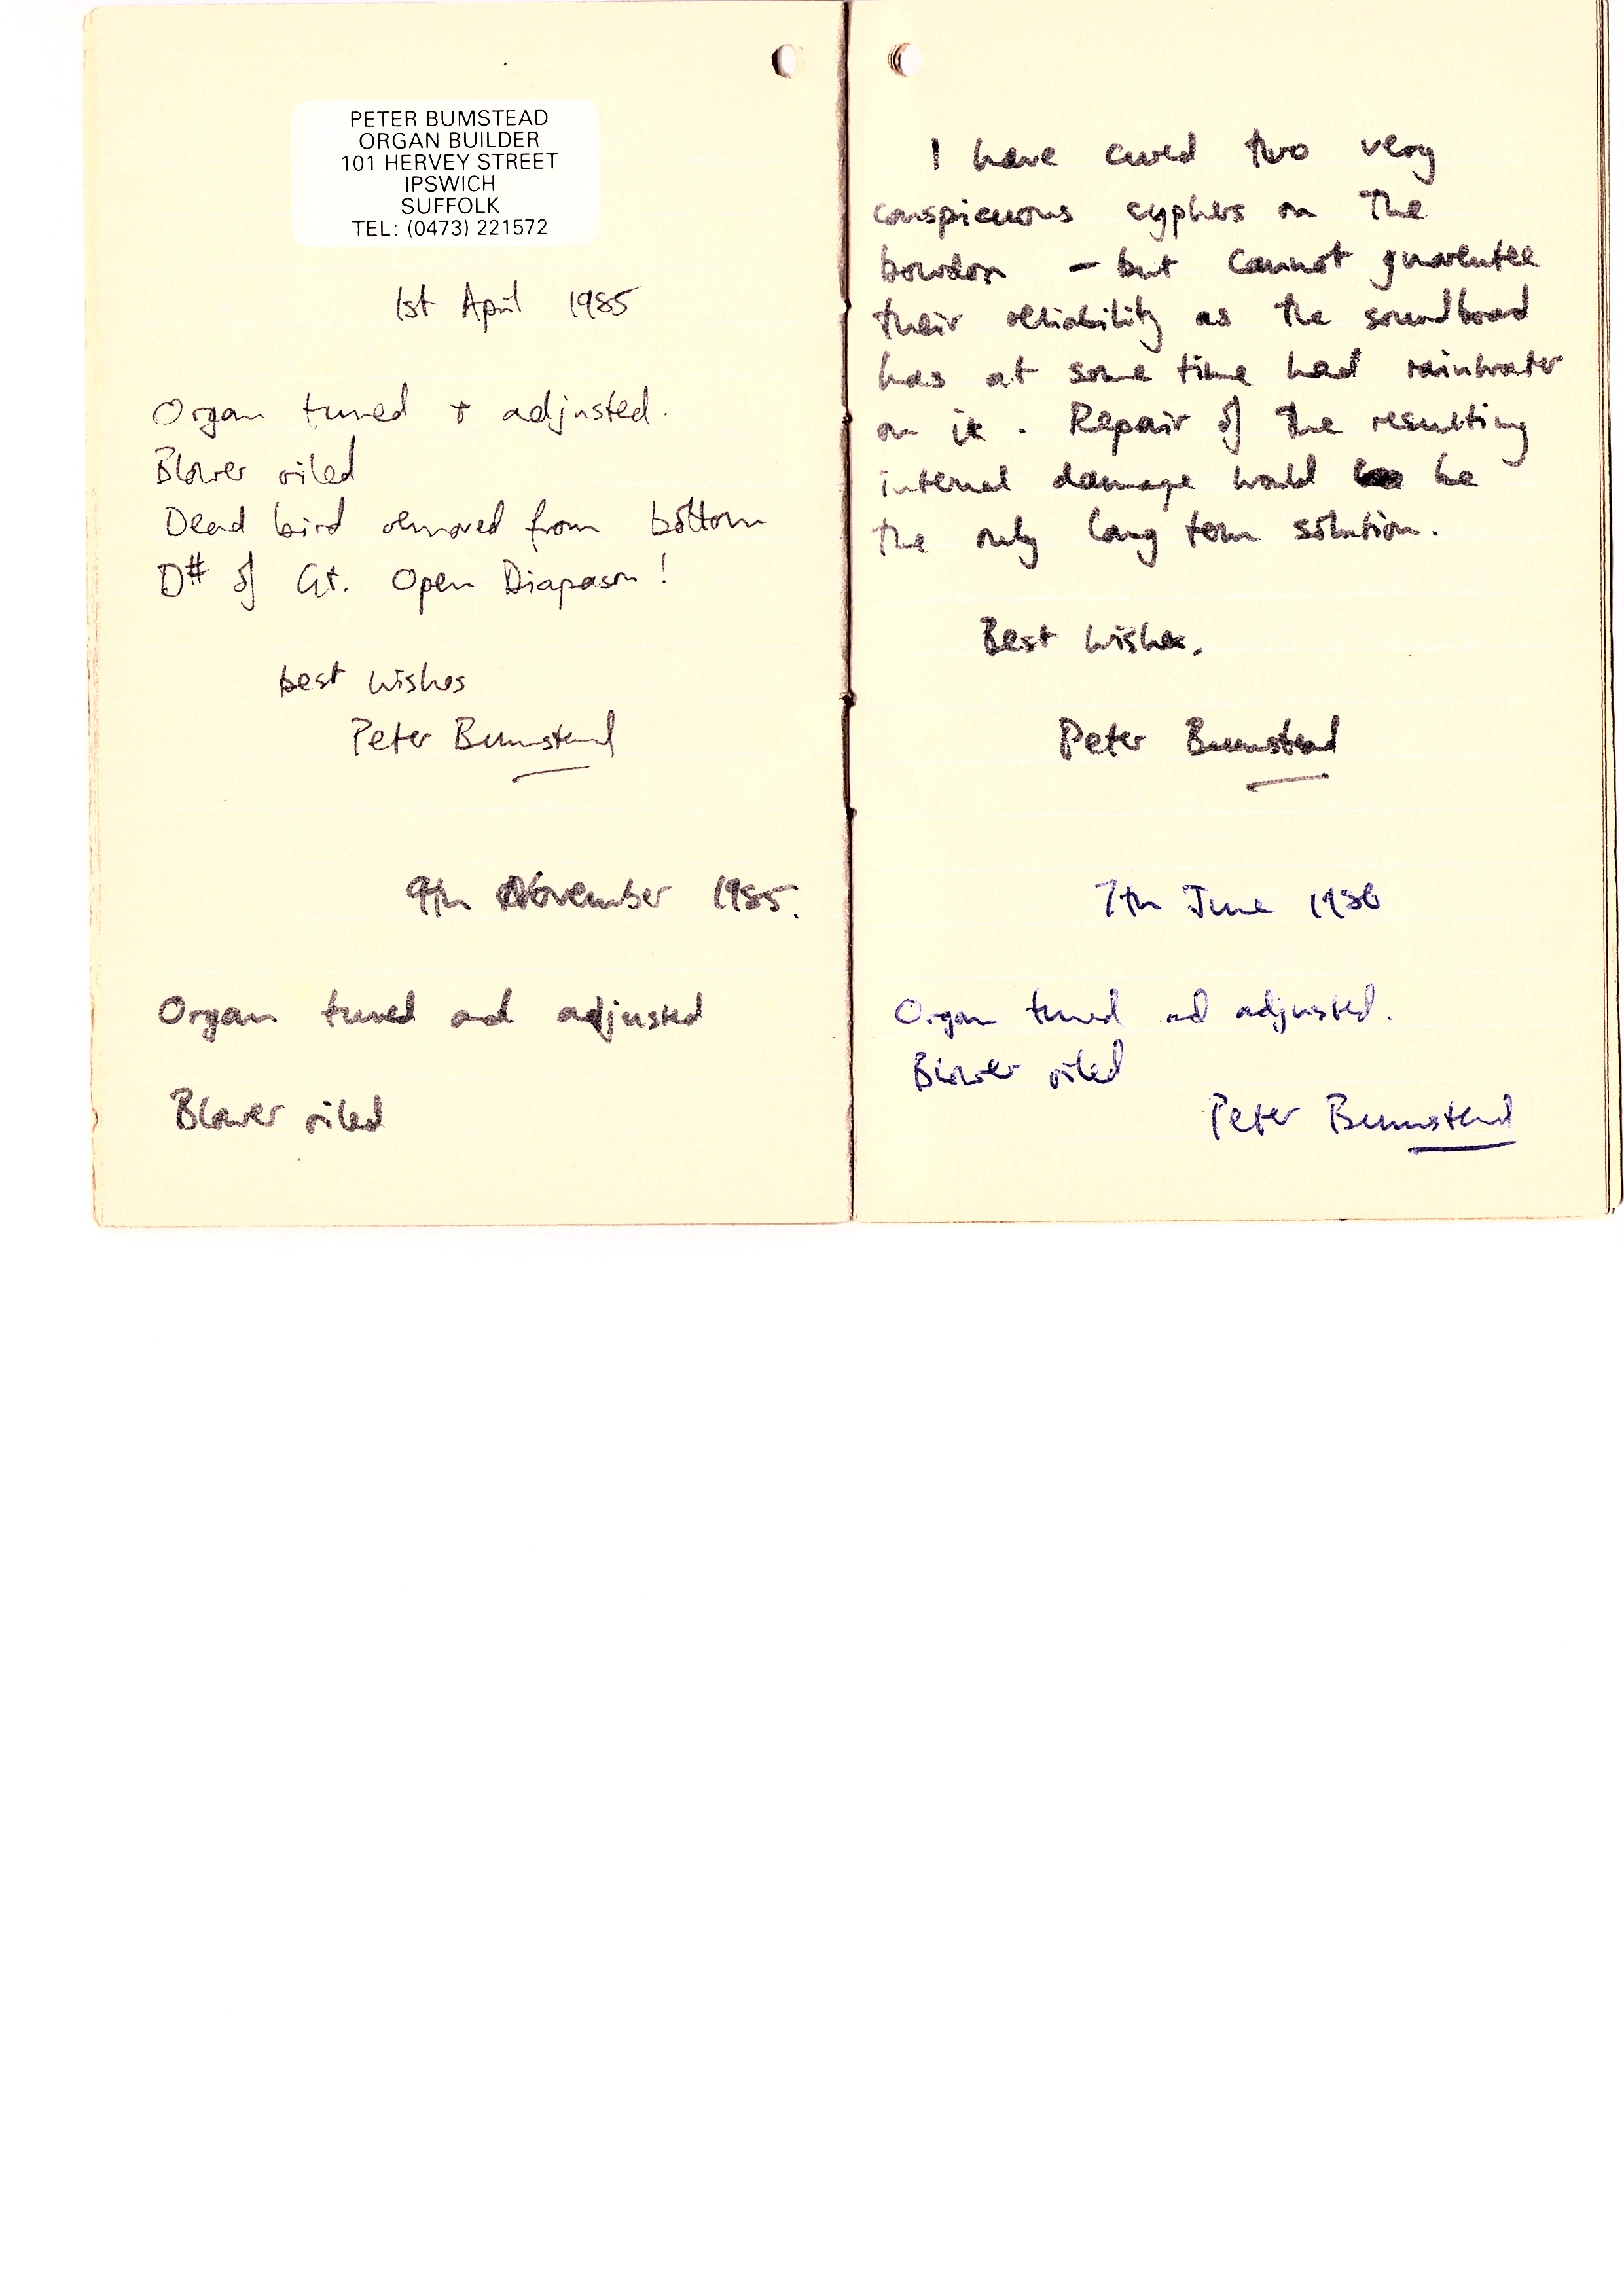 PETER BUMSTEAD
ORGAN BUILDER
101 HERVEY STREET
IPSWICH
SUFFOLK
TEL: (0473) 221572
1st April 1985
Organ tuned + adjusted.
Blower oiled
Dead bird removed from bottom
D# of Gt. Open Diapason!
best wishes
Peter Bumstead
9th November 1985.
Organ tuned and adjusted
Blower oiled
I have cured two very
conspicuous cyphers on the
bourdon - but cannot guarentee
their reliability as the soundboard
has at some time had rainwater
on it. Repair of the resulting
internal damage would be
the only long term solution.
Best wishes.
Peter Bumstead
7th June 1986
Organ tuned and adjusted.
Blower oiled
Peter Bumstead